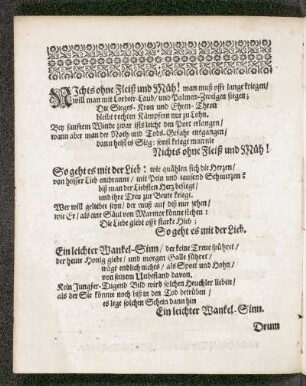 NIchts ohne Fleiß und Müh! man muß offt lange kriegen/
will man mit Lorbeer-Laub/ und Palmen-Zweigen siegen;
Die Sieges-Kron und Ehren-Thron
bleibt rechten Kämpfern nur zu Lohn.
Bey sanfftem Winde zwar ists leicht den Port erlangen/
wann aber man der Noth und Tods-Gefahr entgangen/
dann heißt es Sieg: sonst kriegt man nie
Nichts ohne Fleiß und Müh!
So geht es mit der Lieb: wie quählen sich die Herzen/
von heisser Lieb entbrannt/ mit Pein und tausend Schmerzen:
biß man der Liebsten Herz besiegt/
und ihre Treu zur Beute kriegt.
Wer will geliebet seyn/ der muß auf diß nur sehen/
wie Er/ als eine Säul von Marmor könne stehen:
Die Liebe giebt offt starke Hieb:
So geht es mit der Lieb.
Ein leichter Wankel-Sinn/ der keine Treue führet/
der heute Honig giebt/ und morgen Galle führet/
trägt endlich nichts/ als Spott und Hohn/
von seinem Unbestand davon.
Kein Jungfer-Tugend Bild wird solchen Heuchler lieben/
als der Sie könnte noch biß in den Tod betrüben/
es lege solchen Schein dann hin
Ein leichter Wankel-Sinn.
Drum